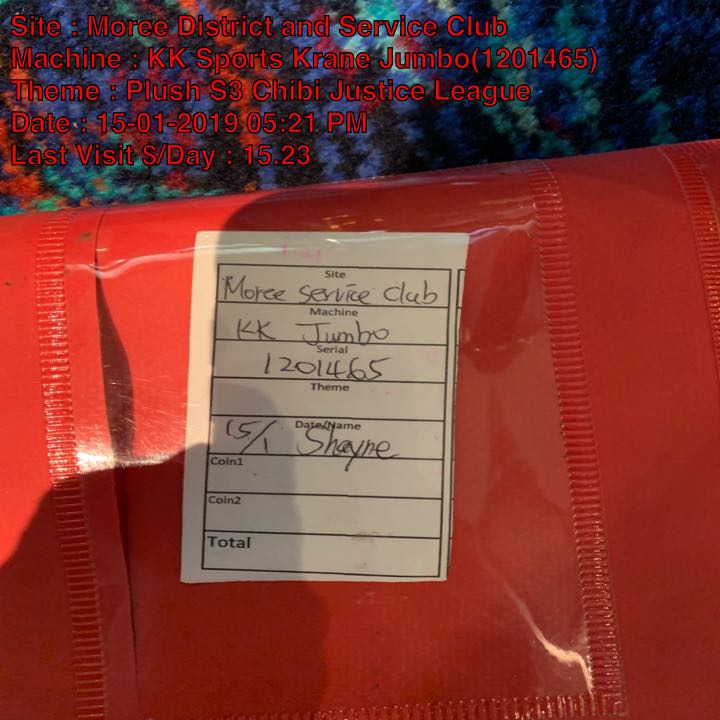 Site : Moree District and Service Club
Machine : KK Sports Krane Jumbo(1201465)
Theme : Plush S3 Chibi Justice League
Date : 15-01-2019 05:21 PM
Last Visit $/Day : 15.23
Site
Moree service club
Machine
KK Jumbo
Serial
1201465
Theme
Date/Name
15/1 Shayne
Coin1
Coin2
Total